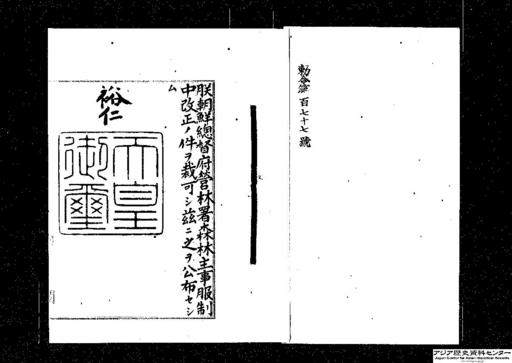 勅令第百七十七號
朕朝鮮總督府營林署森林主事服制
中改正ノ件ヲ裁可シ茲ニ之ヲ公布セシ
ム
裕仁
天皇
御璽
アジア歴史資料センター
Japan Center for Asian Historical Records